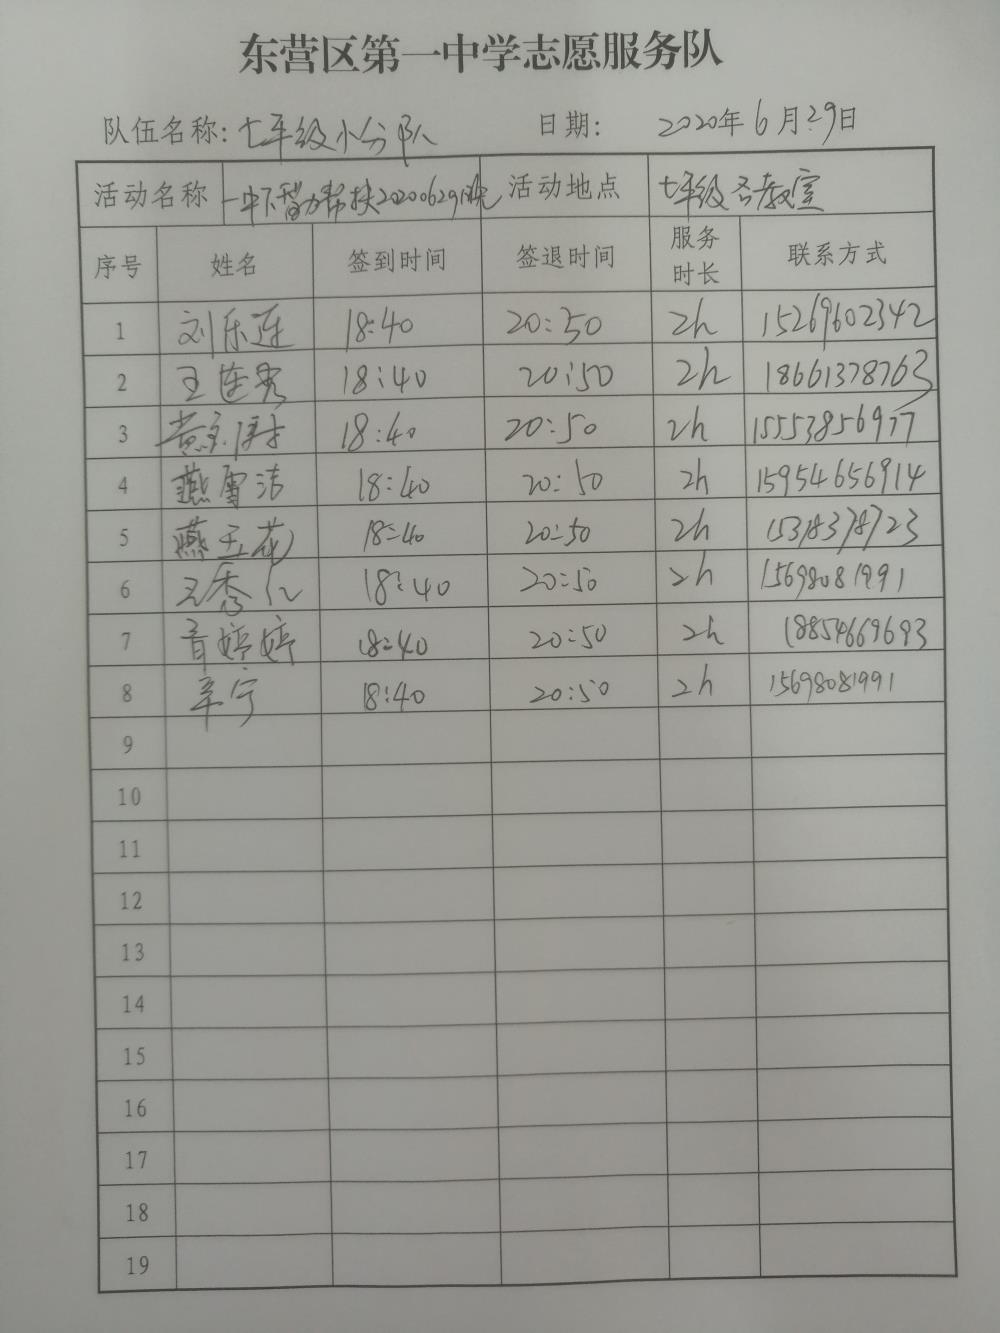 东营区第一中学志愿服务队
队伍名称: 七年级小分队 日期: 2020年6月29日
活动名称 一中下智力帮扶20200629晚 活动地点 七年级各教室
序号 姓名 签到时间 签退时间 服务时长 联系方式
1 刘乐莲 18:40 20:50 2h 15269602342
2 王莲秀 18:40 20:50 2h 18661378763
3 18:40 20:50 2h 15553856977
4 燕雪洁 18:40 20:50 2h 15954656914
5 燕玉花 18:40 20:50 2h 15318378723
6 王秀仁 18:40 20:50 2h 15698081991
7 婷婷 18:40 20:50 2h 18854669693
8 辛宁 18:40 20:50 2h 15698081991
9
10
11
12
13
14
15
16
17
18
19